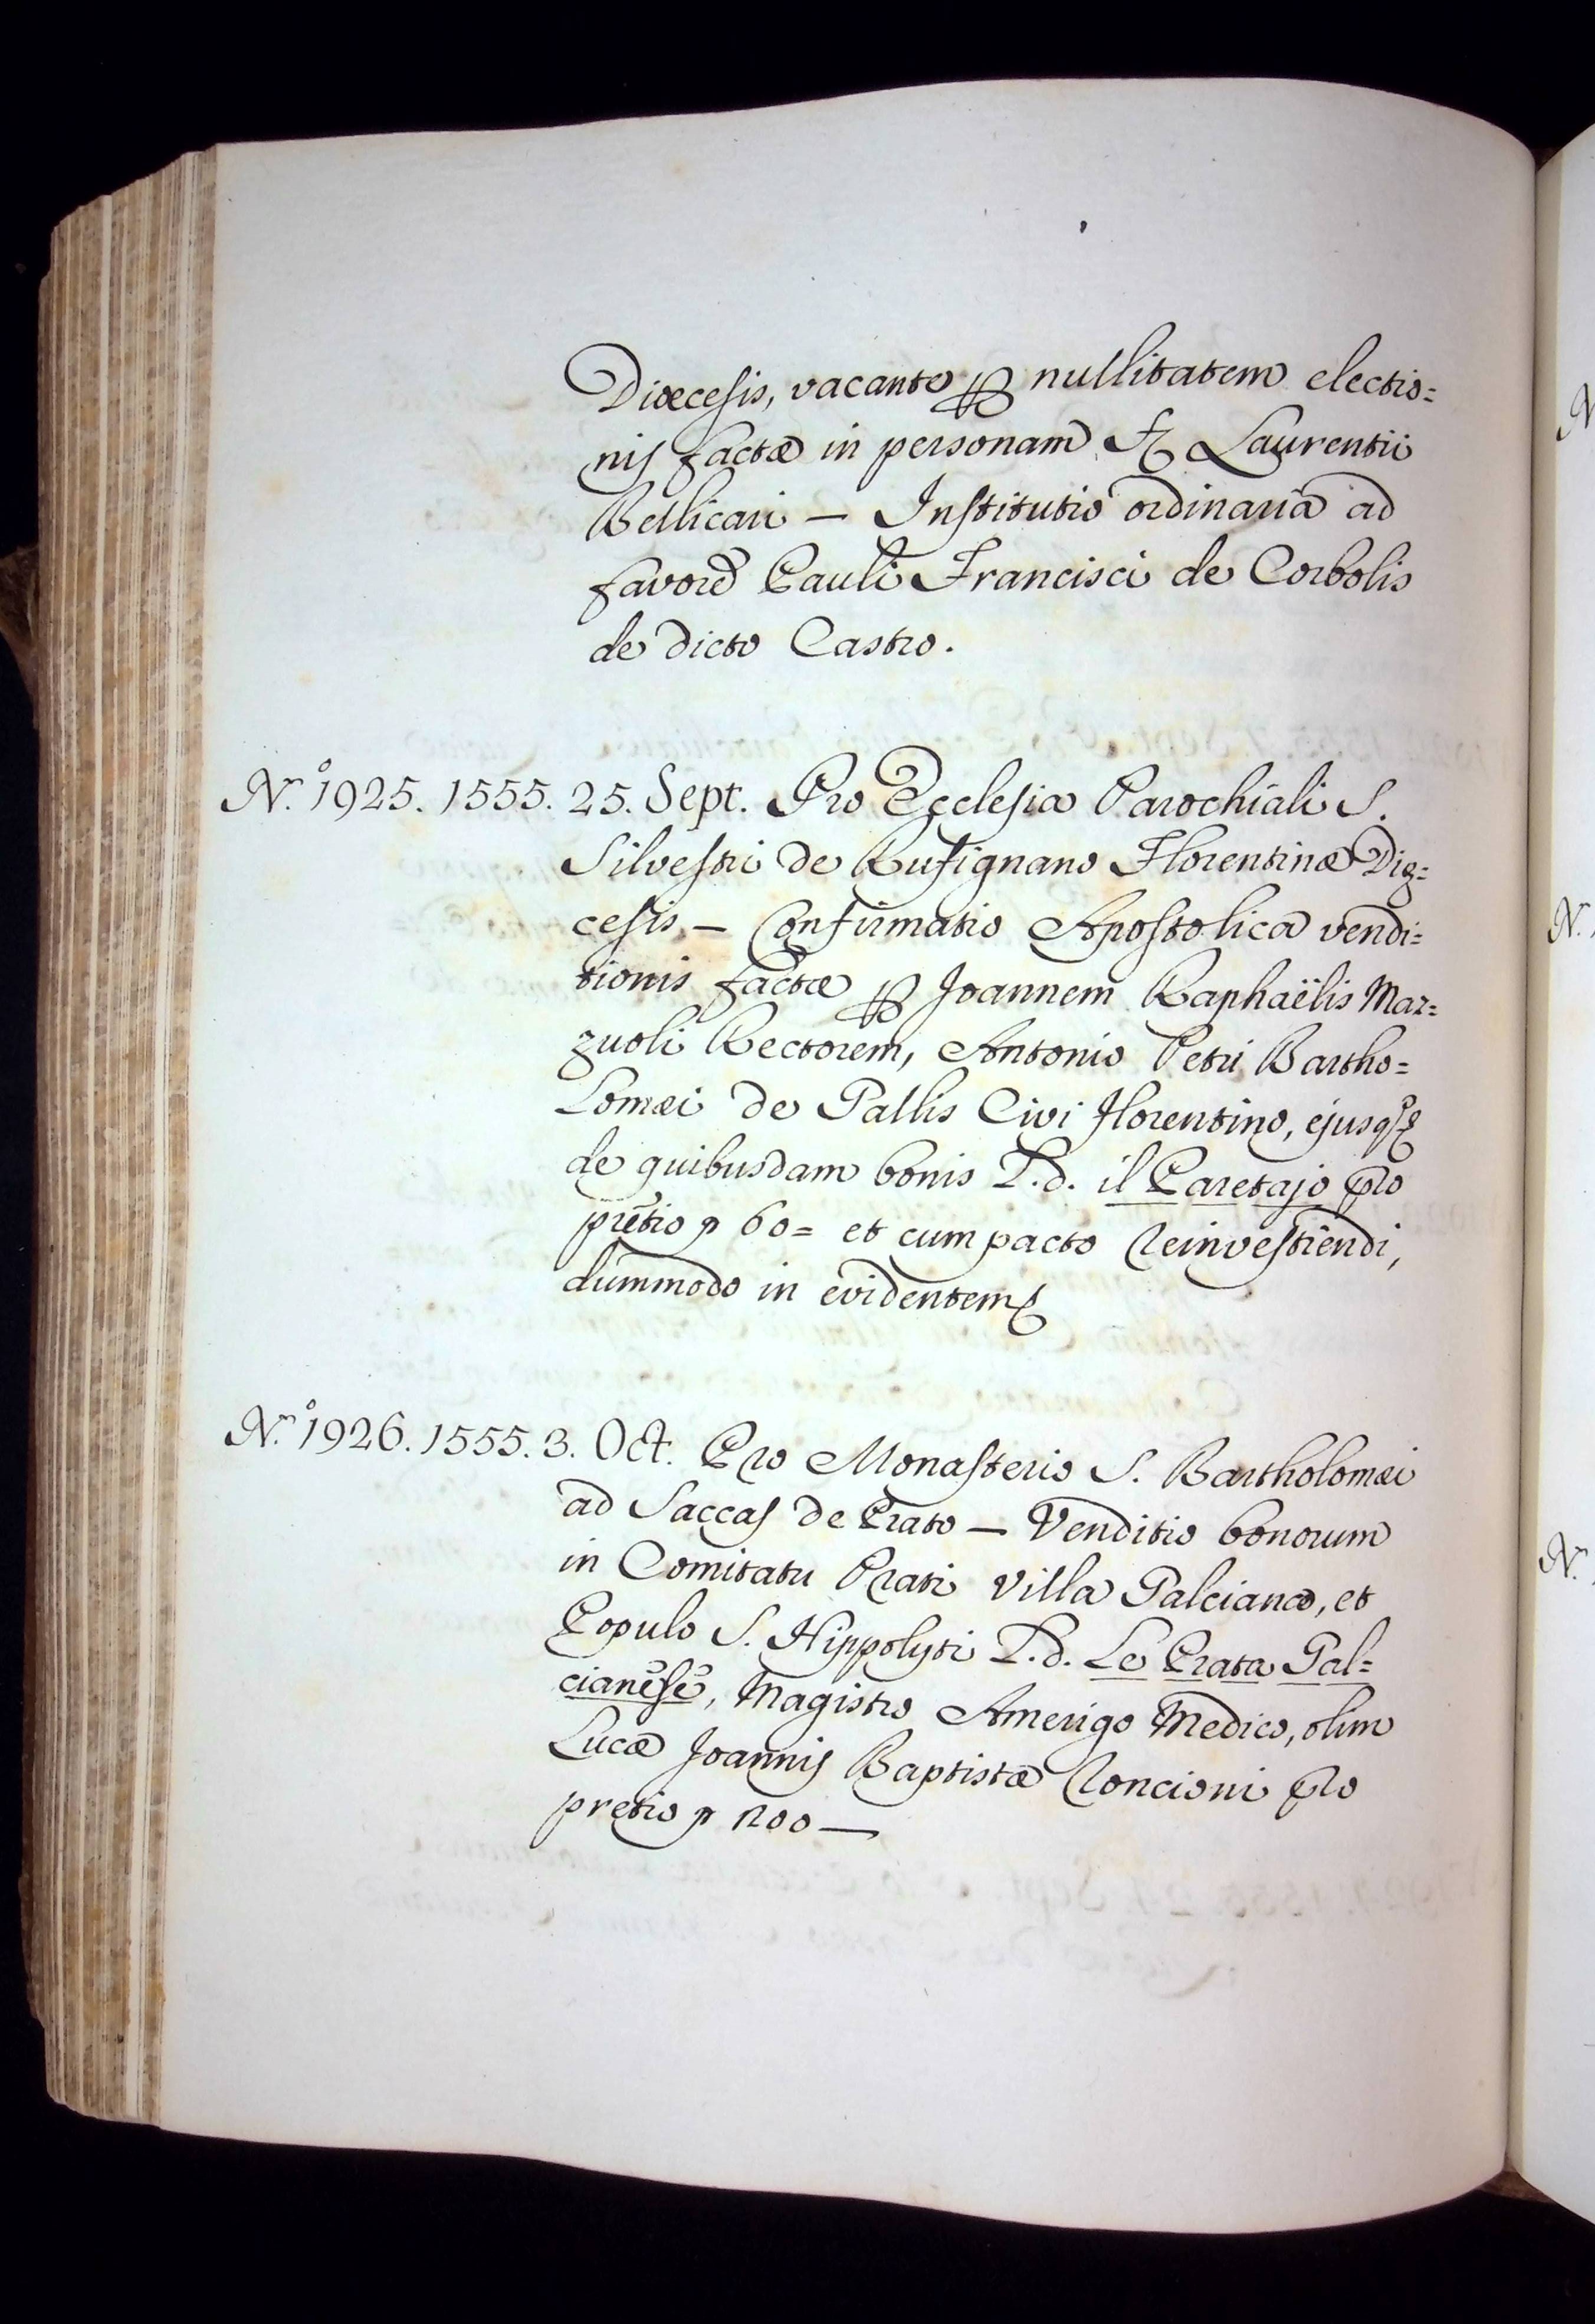 Diœcesis, vacante ꝑ nullitatem electio=
nis factæ in personam Laurentii
Bellicari — Institutio ordinaria ad
favorē Pauli Francisci de Corbolis
de dicto Castro.
N.º 1925. 1555. 25. Sept. Pro Ecclesia Parochiali S.
Silvestri de Rufignano Florentinæ Diœ=
cesis — Confirmatio Apostolica vendi=
tionis factæ ꝑ Joannem Raphaëlis Mar=
zuoli Rectorem, Antonio Petri Bartho=
lomæi de Gallis Civi Florentino,
de quibusdam bonis L.d. il Paretajo pro
pretio 60= et cum pacto reinvestiendi,
dummodo in evidentem
N.º 1926. 1555. 3. Oct. Pro Monasterio S. Bartholomæi
ad Saccas de Prato — Venditio bonorum
in Comitatu Prati Villa Galcianæ, et
Populo S. Hippolyti L.d. Le Prata Gal=
cianese, Magistro Amerigo Medico, olim
Lucæ Joannis Baptistæ Roncioni pro
pretio 1200 —
N
N.
N.